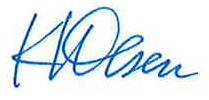 K Olsen